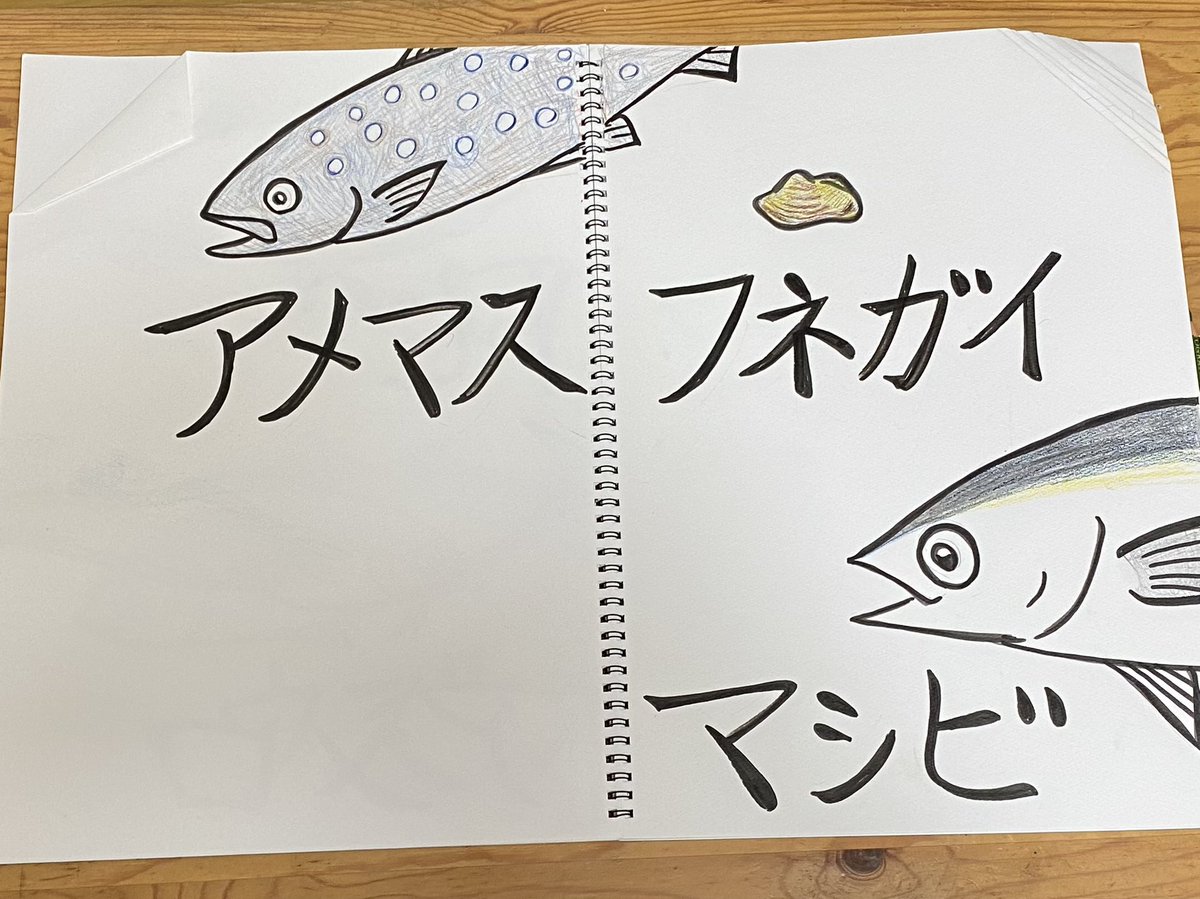 アメマス
フネガイ
マシビ